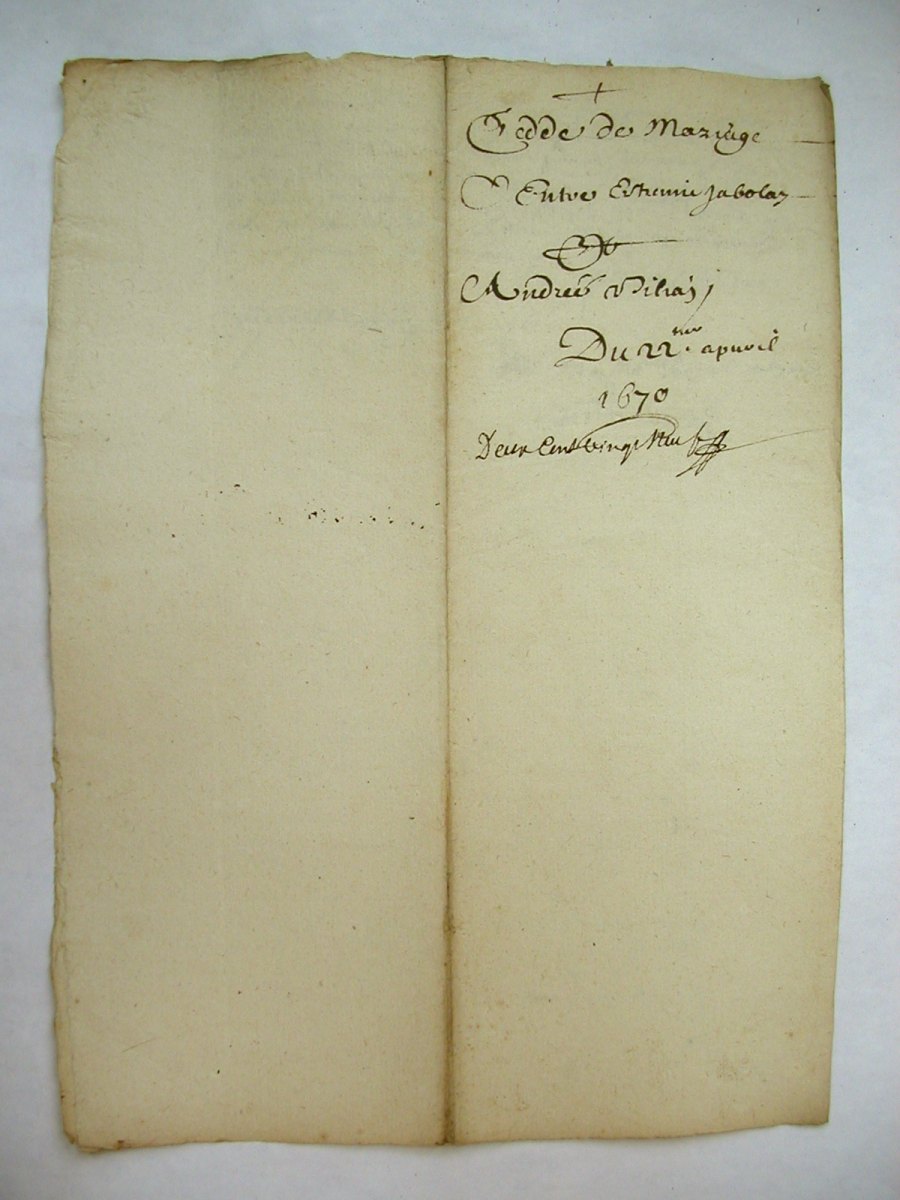 +
Cedde de Mariage
Entre Estienne Jabolay
Et
Andreé
Du 22.me apuril
1670
Deux Cent vingt Neuf